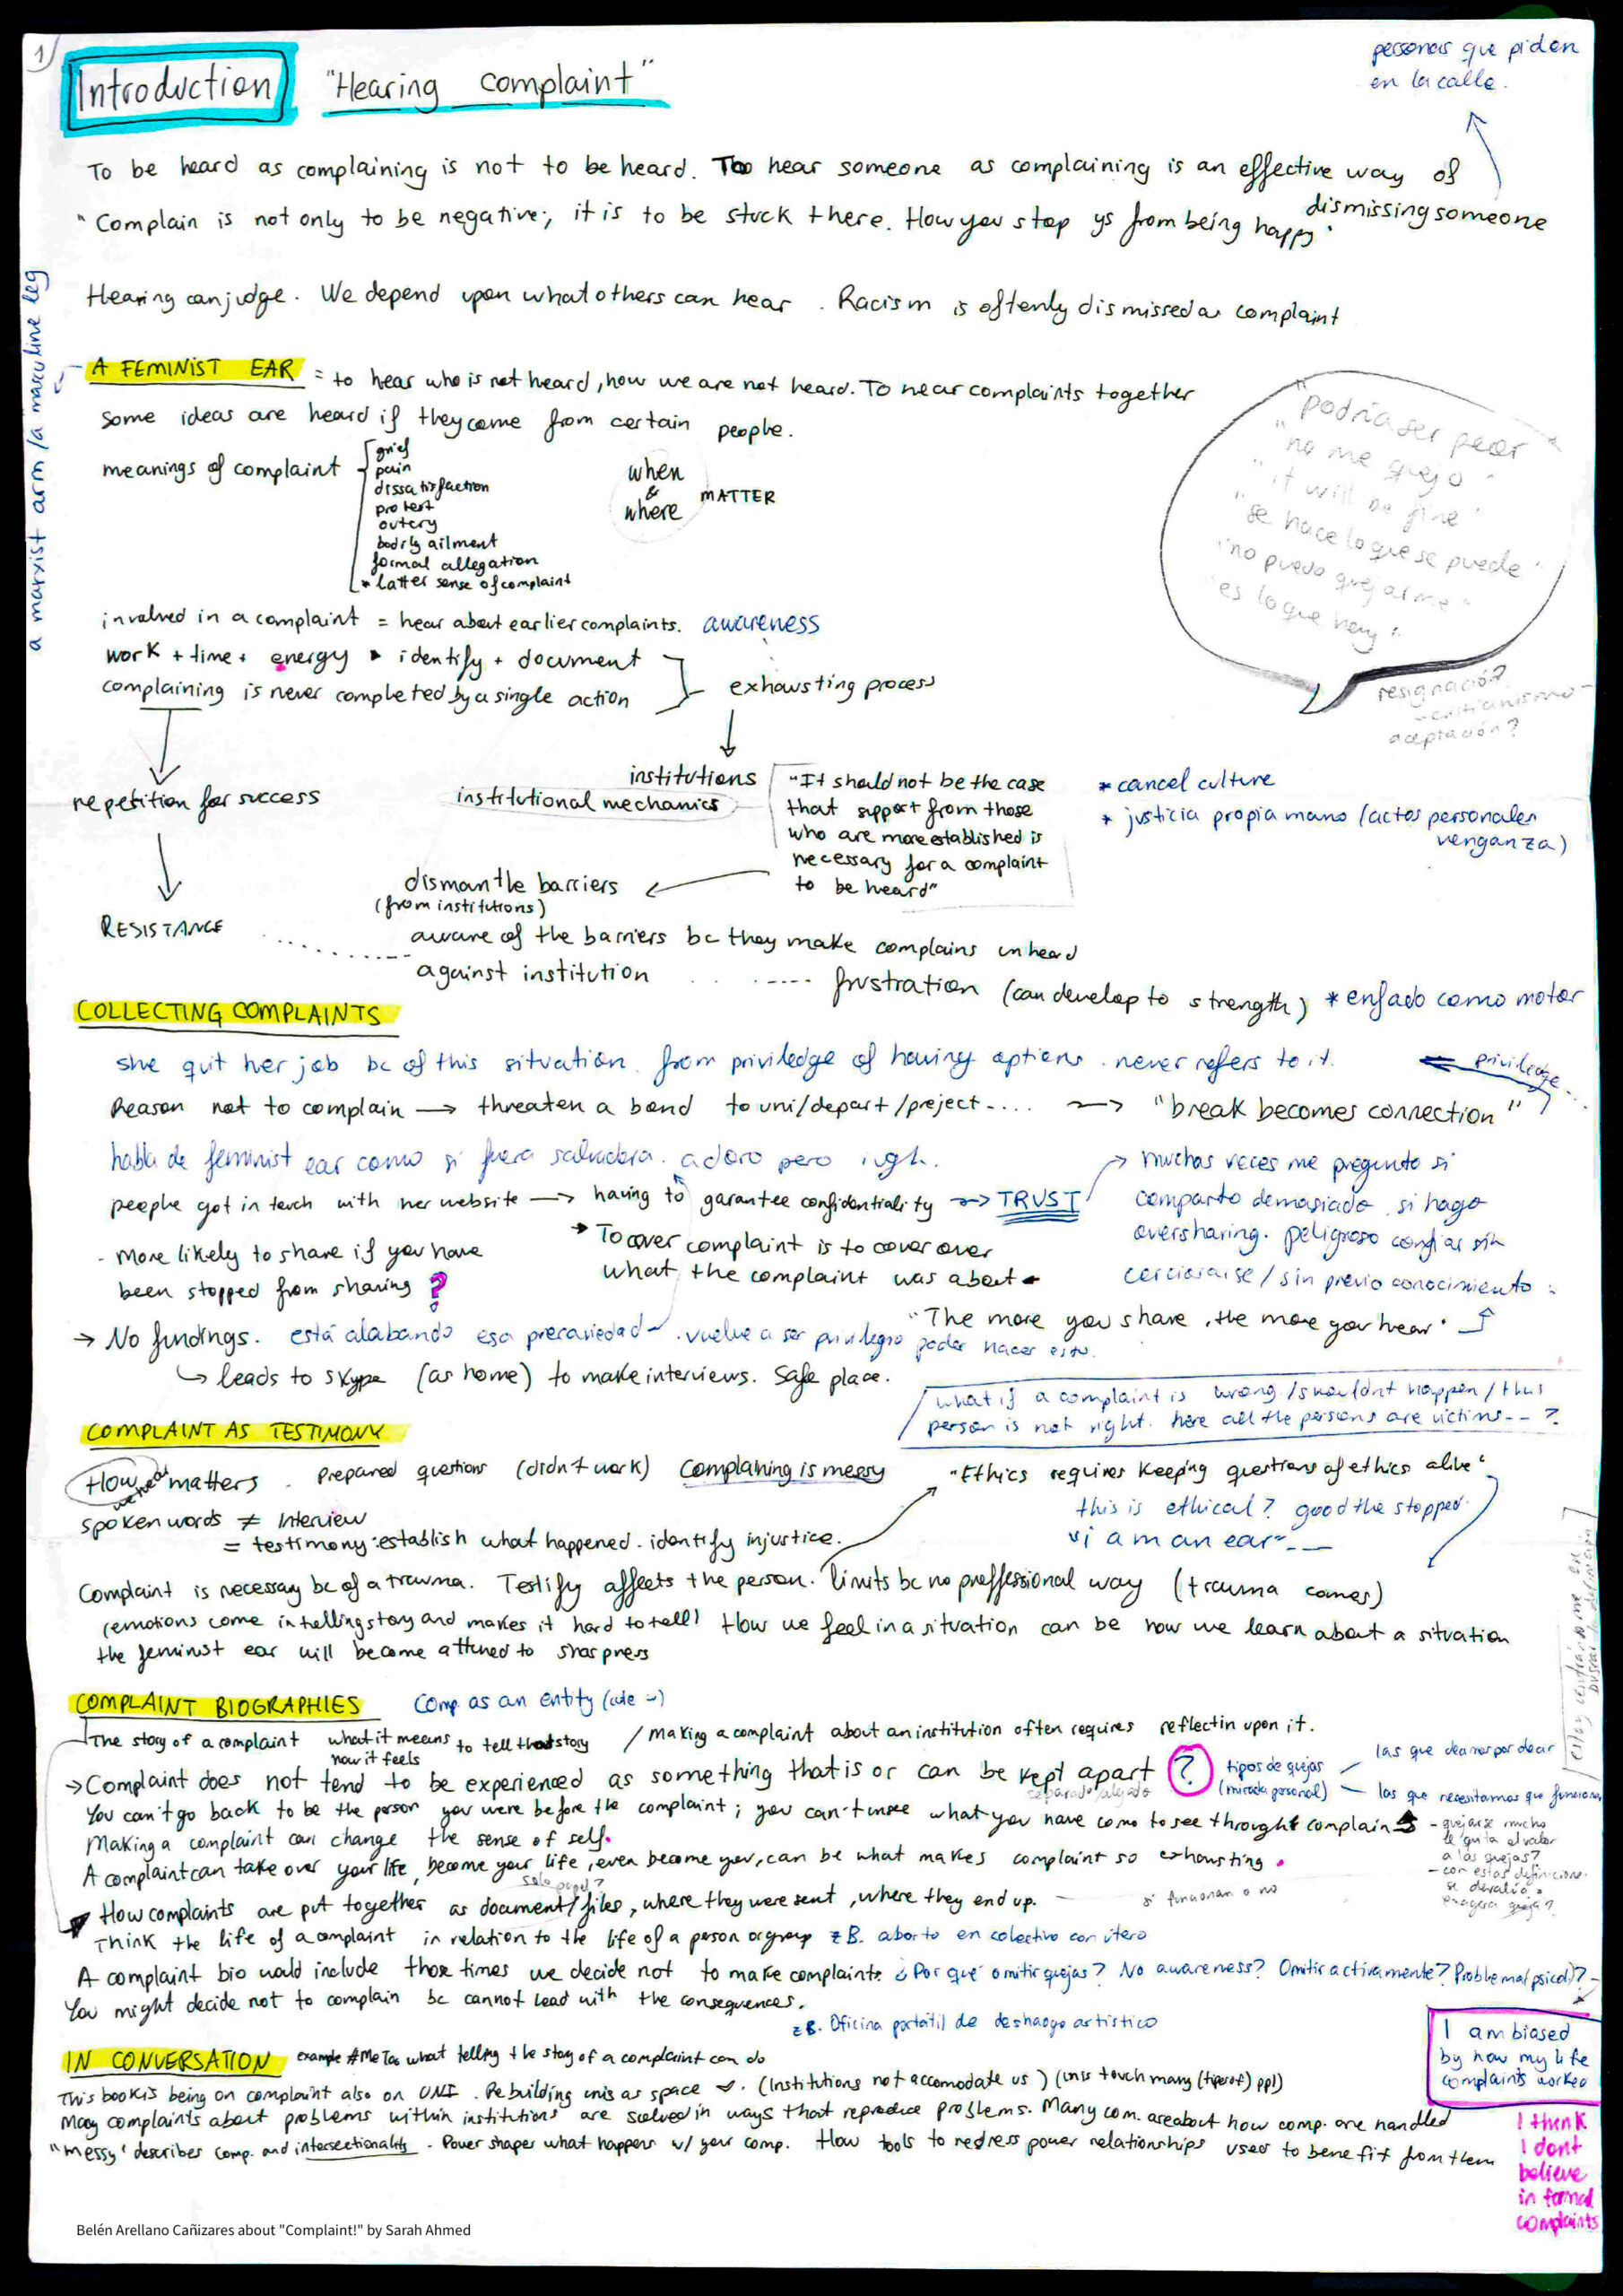 1)
Introduction "Hearing complaint"
personas que piden
en la calle.
To be heard as complaining is not to be heard. Too hear someone as complaining is an effective way of
dismissing someone
"Complain is not only to be negative; it is to be stuck there. How you stop ys from being happy"
Hearing can judge. We depend upon what others can hear. Racism is oftenly dismissed as complaint
a marxist arm / a masculine leg
A FEMINIST EAR = to hear who is not heard, how we are not heard. To hear complaints together
some ideas are heard if they come from certain people.
meanings of complaint
grief
pain
dissatisfaction
protest
outcry
bodily ailment
formal allegation
* latter sense of complaint
when
&
where
MATTER
"podría ser peor"
"no me quejo"
"it will be fine"
"se hace lo que se puede"
"no puedo quejarme"
"es lo que hay".
resignación?
- cristianismo -
aceptación?
involved in a complaint = hear about earlier complaints. awareness
work + time + energy ▸ identify + document
complaining is never completed by a single action
exhausting process
repetition for success
RESISTANCE
institutions
institutional mechanics
"It should not be the case
that support from those
who are more established is
necessary for a complaint
to be heard"
* cancel culture
* justicia propia mano (actos personales
venganza)
dismantle barriers
(from institutions)
aware of the barriers bc they make complains unheard
against institution ..... frustration (can develop to strength) * enfado como motor
COLLECTING COMPLAINTS
she quit her job bc of this situation. from priviledge of having options. never refers to it.
priviledge...
Reason not to complain → threaten a bond to uni/depart/project.... → "break becomes connection"
habla de feminist ear como si fuera salvadora. adoro pero ugh.
people got in touch with her website → having to garantee confidentiality → TRUST
muchas veces me pregunto si
comparto demasiado. si hago
oversharing. peligroso confiar sin
cerciorarse / sin previo conocimiento
- More likely to share if you have
been stopped from sharing ?
→ To cover complaint is to cover over
what the complaint was about
"The more you share, the more you hear"
→ No findings. está alabando esa precariedad. vuelve a ser privilegio poder hacer esto.
↳ leads to skype (as home) to make interviews. Safe place.
what if a complaint is wrong / shouldnt happen / this
person is not right. here all the persons are victims -- ?
COMPLAINT AS TESTIMONY
How we hear matters. Prepared questions (didn't work) Complaining is messy
"Ethics requires keeping questions of ethics alive"
this is ethical? good the stopped.
"i am an ear" ---
spoken words ≠ Interview
= testimony: establish what happened. identify injustice.
Complaint is necessary bc of a trauma. Testify affects the person. limits bc no proffessional way (trauma comes)
(emotions come in telling story and makes it hard to tell) How we feel in a situation can be how we learn about a situation
the feminist ear will become attuned to sharpness
COMPLAINT BIOGRAPHIES Comp. as an entity (cute :)
The story of a complaint what it means to tell that story / Making a complaint about an institution often requires reflectin upon it.
how it feels
→ Complaint does not tend to be experienced as something that is or can be kept apart ?
separado/alejado
tipos de quejas
(mirada personal)
las que decimos por decir
las que necesitamos que funcionen
You can't go back to be the person you were before the complaint; you can't unsee what you have come to see throught complain
Making a complaint can change the sense of self.
A complaint can take over your life, become your life, even become you, can be what makes complaint so exhausting.
- quejarse mucho
le quita el valor
a las quejas?
- con estas definiciones
se devalúa o
exagera queja?
solo papel?
How complaints are put together as document/files, where they were sent, where they end up. — si funcionan o no
Think the life of a complaint in relation to the life of a person or group z.B. aborto en colectivo con útero
A complaint bio would include those times we decide not to make complaints. ¿Por qué omitir quejas? No awareness? Omitir activamente? Problema(psicol)?
You might decide not to complain bc cannot lead with the consequences.
z.B. Oficina portátil de desahogo artístico
I am biased
by how my life
complaints worked
I think
I dont
believe
in formal
complaints
IN CONVERSATION example #MeToo what telling the story of a complaint can do
This book is being on complaint also on UNI. Rebuilding unis as space. (Institutions not accomodate us) (unis touch many (tipes of) ppl)
Many complaints about problems within institutions are solved in ways that reproduce problems. Many com. are about how comp. are handled
"messy" describes comp. and intersectionality. Power shapes what happens w/ your comp. How tools to redress power relationships used to benefit from them
Belén Arellano Cañizares about "Complaint!" by Sarah Ahmed